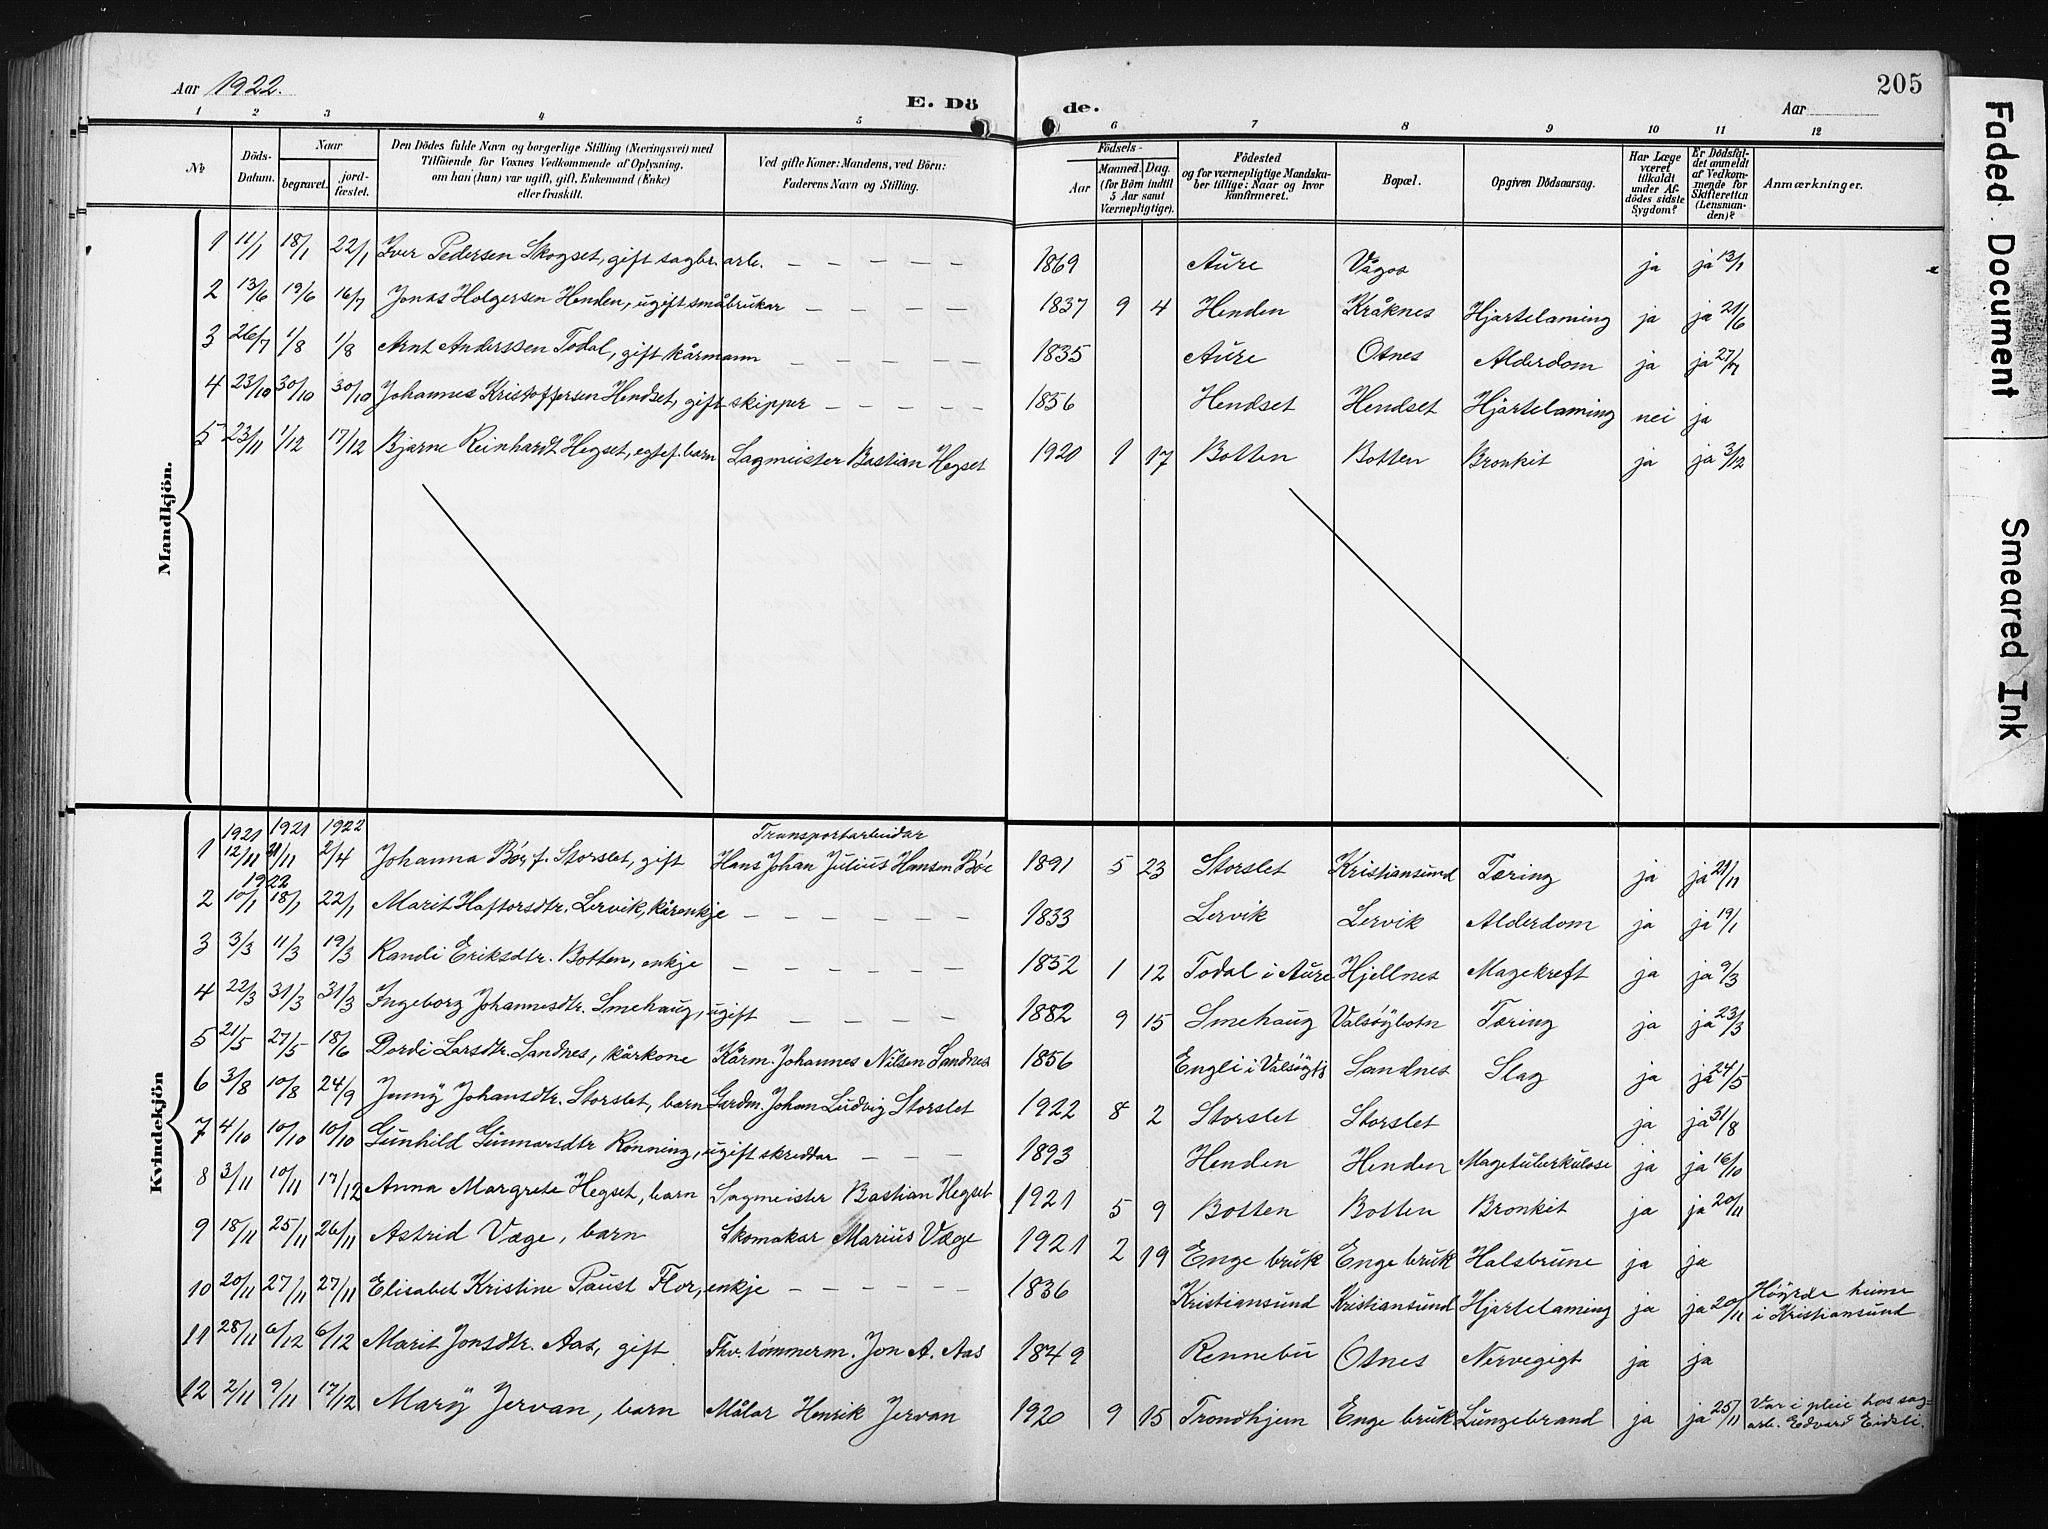 Aar 1922.
E. Dö de.
Aar
205
1 2 3 4 5 6 7 8 9 10 11 12
No
Döds-Datum.
Naar
begravet.
jordfæstet.
Den Dödes fulde Navn og borgerlige Stilling (Næringsvei) med
Tilföiende for Voxnes Vedkommende af Oplysning,
om han (hun) var ugift, gift, Enkemand (Enke)
eller fraskilt.
Ved gifte Koner: Mandens, ved Börn:
Faderens Navn og Stilling.
Födsels-
Aar
Maaned. Dag.
(for Börn indtil
5 Aar samt
Værnepligtige).
Födested
og for værnepligtige Mandska-
ber tillige: Naar og hvor
konfirmeret.
Bopæl.
Opgiven Dödsaarsag.
Har Læge
været
tilkaldt
under Af-
dödes sidste
Sygdom?
Er Dödsfal-
det anmeldt
af Vedkom-
mende for
Skifteretten
(Lensman-
den)?
Anmærkninger.
Mandkjön.
1 11/1 18/1 22/1 Iver Pedersen Skogset, gift sagbr.arb. — — — — — 1869 Aure Vågos ja ja 13/1
2 13/6 19/6 16/7 Jonas Holgersen Henden, ugift småbrukar — — — — 1837 9 4 Henden Kråknes Hjartelaming ja ja 21/6
3 26/7 1/8 1/8 Arnt Anderssen Todal, gift kårmann — — — — 1835 Aure Otnes Alderdom ja ja 27/7
4 23/10 30/10 30/10 Johannes Kristoffersen Hendset, gift skipper — — — — — 1856 Hendset Hendset Hjartelaming nei ja
5 23/11 1/12 17/12 Bjarne Reinhardt Hegset, egtef. barn Sagmeister Bastian Hegset 1920 1 17 Botten Botten Bronkit ja ja 3/12
Kvindekjön
1921 1921 1922 Transportarbeidar
1 12/11 21/11 2/4 Johanna Böe f. Storslet, gift Hans Johan Julius Hansen Böe 1891 5 23 Storslet Kristiansund Tæring ja ja 21/11
1922
2 10/1 18/1 22/1 Marit Haftorsdtr. Lervik, kårenkje — — — — — 1833 Lervik Lervik Alderdom ja ja 19/1
3 3/3 11/3 19/3 Randi Eriksdtr. Botten, enkje — — — — — — 1852 1 12 Todal i Aure Hjellnes Magekreft ja ja 9/3
4 22/3 31/3 31/3 Ingeborg Johannesdtr. Smehaug, ugift — — — — — 1882 9 15 Smehaug Valsöybotn Tæring ja ja 23/3
5 21/5 27/5 18/6 Dordi Larsdtr. Sandnes, kårkone Kårm. Johannes Nilsen Sandnes 1856 Engli i Valsöyfj Sandnes Slag ja ja 24/5
6 3/8 10/8 24/9 Jenny Johansdtr. Storslet, barn Gardm. Johan Ludvig Storslet 1922 8 2 Storslet Storslet ja ja 31/8
7 4/10 10/10 10/10 Gunhild Gunnarsdtr Rønning, ugift skreddar — — — — 1893 Henden Henden Magetuberkulose ja ja 16/10
8 3/11 10/11 17/12 Anna Margrete Hegset, barn Sagmeister Bastian Hegset 1921 5 9 Botten Botten Bronkit ja ja 20/11
9 18/11 25/11 26/11 Astrid Væge, barn Skomakar Marius Væge 1921 2 19 Enge bruk Enge bruk Halsbrune ja ja
10 20/11 27/11 27/11 Elisabet Kristine Paust Flor, enkje — — — — — 1836 Kristiansund Kristiansund Hjartelaming ja ja 20/11 Höyrde heime
i Kristiansund
11 28/11 6/12 6/12 Marit Jonsdtr. Aas, gift Fhv. tömmerm. Jon A. Aas 1849 Rennebu Otnes Nervegigt ja ja
12 2/11 9/11 17/12 Mary Jervan, barn Målar Henrik Jervan 1920 9 15 Trondhjem Enge bruk Lungebrand ja ja 25/11 Var i pleie hos sag-
arb. Edvard Eidsli.
Faded Document
Smeared Ink